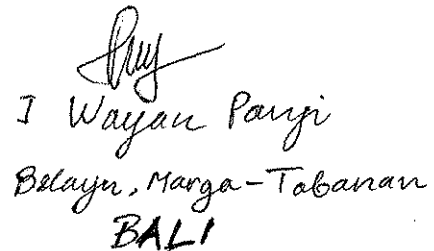 I Wayan Panji
Belayu, Marga-Tabanan
BALI